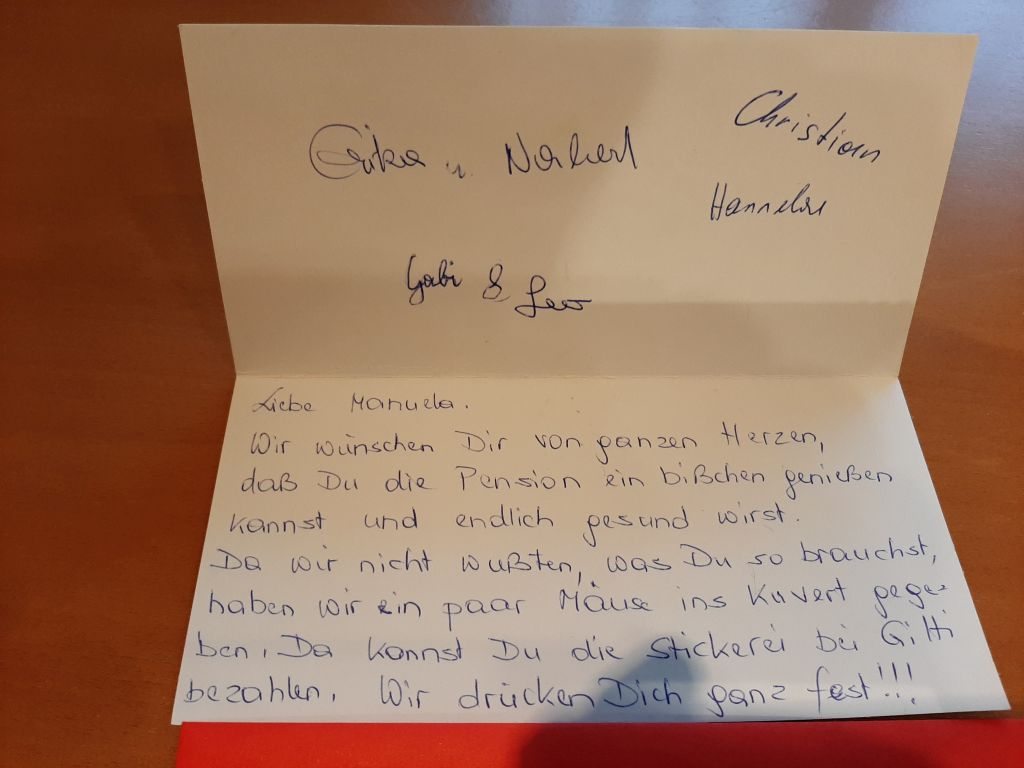 Christian
Erika u. Norbert
Hannelore
Gabi & Leo
Liebe Manuela.
Wir wünschen Dir von ganzen Herzen,
daß Du die Pension ein bißchen genießen
kannst und endlich gesund wirst.
Da wir nicht wußten, was Du so brauchst,
haben wir ein paar Mäuse ins Kuvert gege-
ben. Da kannst Du die Stickerei bei Gitti
bezahlen. Wir drücken Dich ganz fest!!!